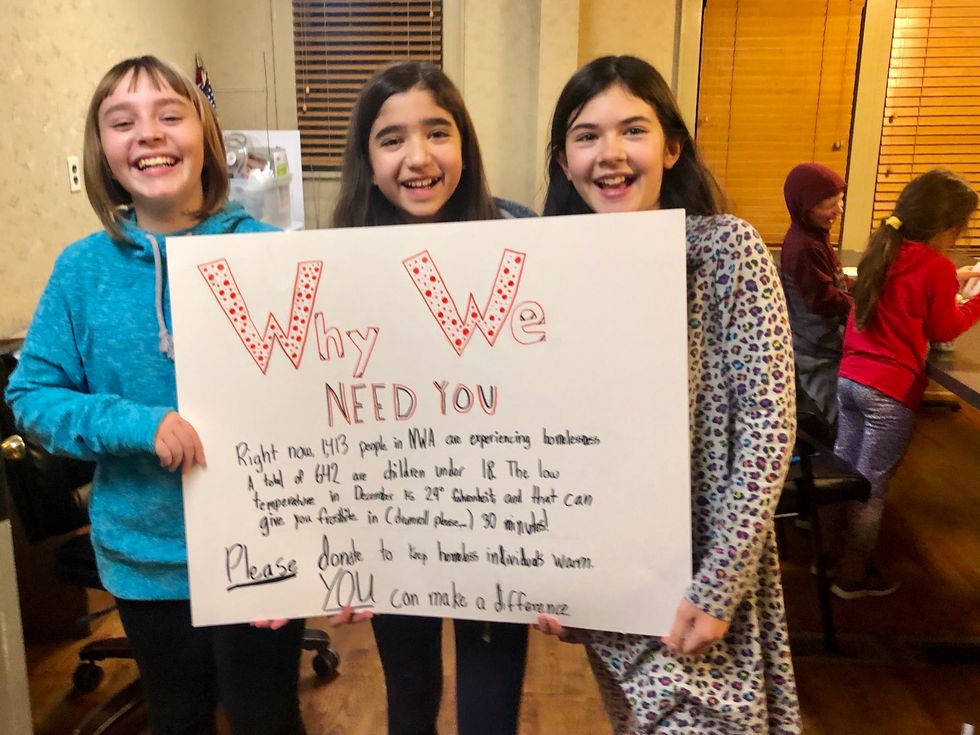 Why We
NEED YOU
Right now, 1,413 people in NWA are experiencing homelessness
A total of 642 are children under 18. The low
temperature in December is 29° fahrenheit and that can
give you frostbite in (drumroll please...) 30 minutes!
Please donate to keep homeless individuals warm.
YOU can make a difference